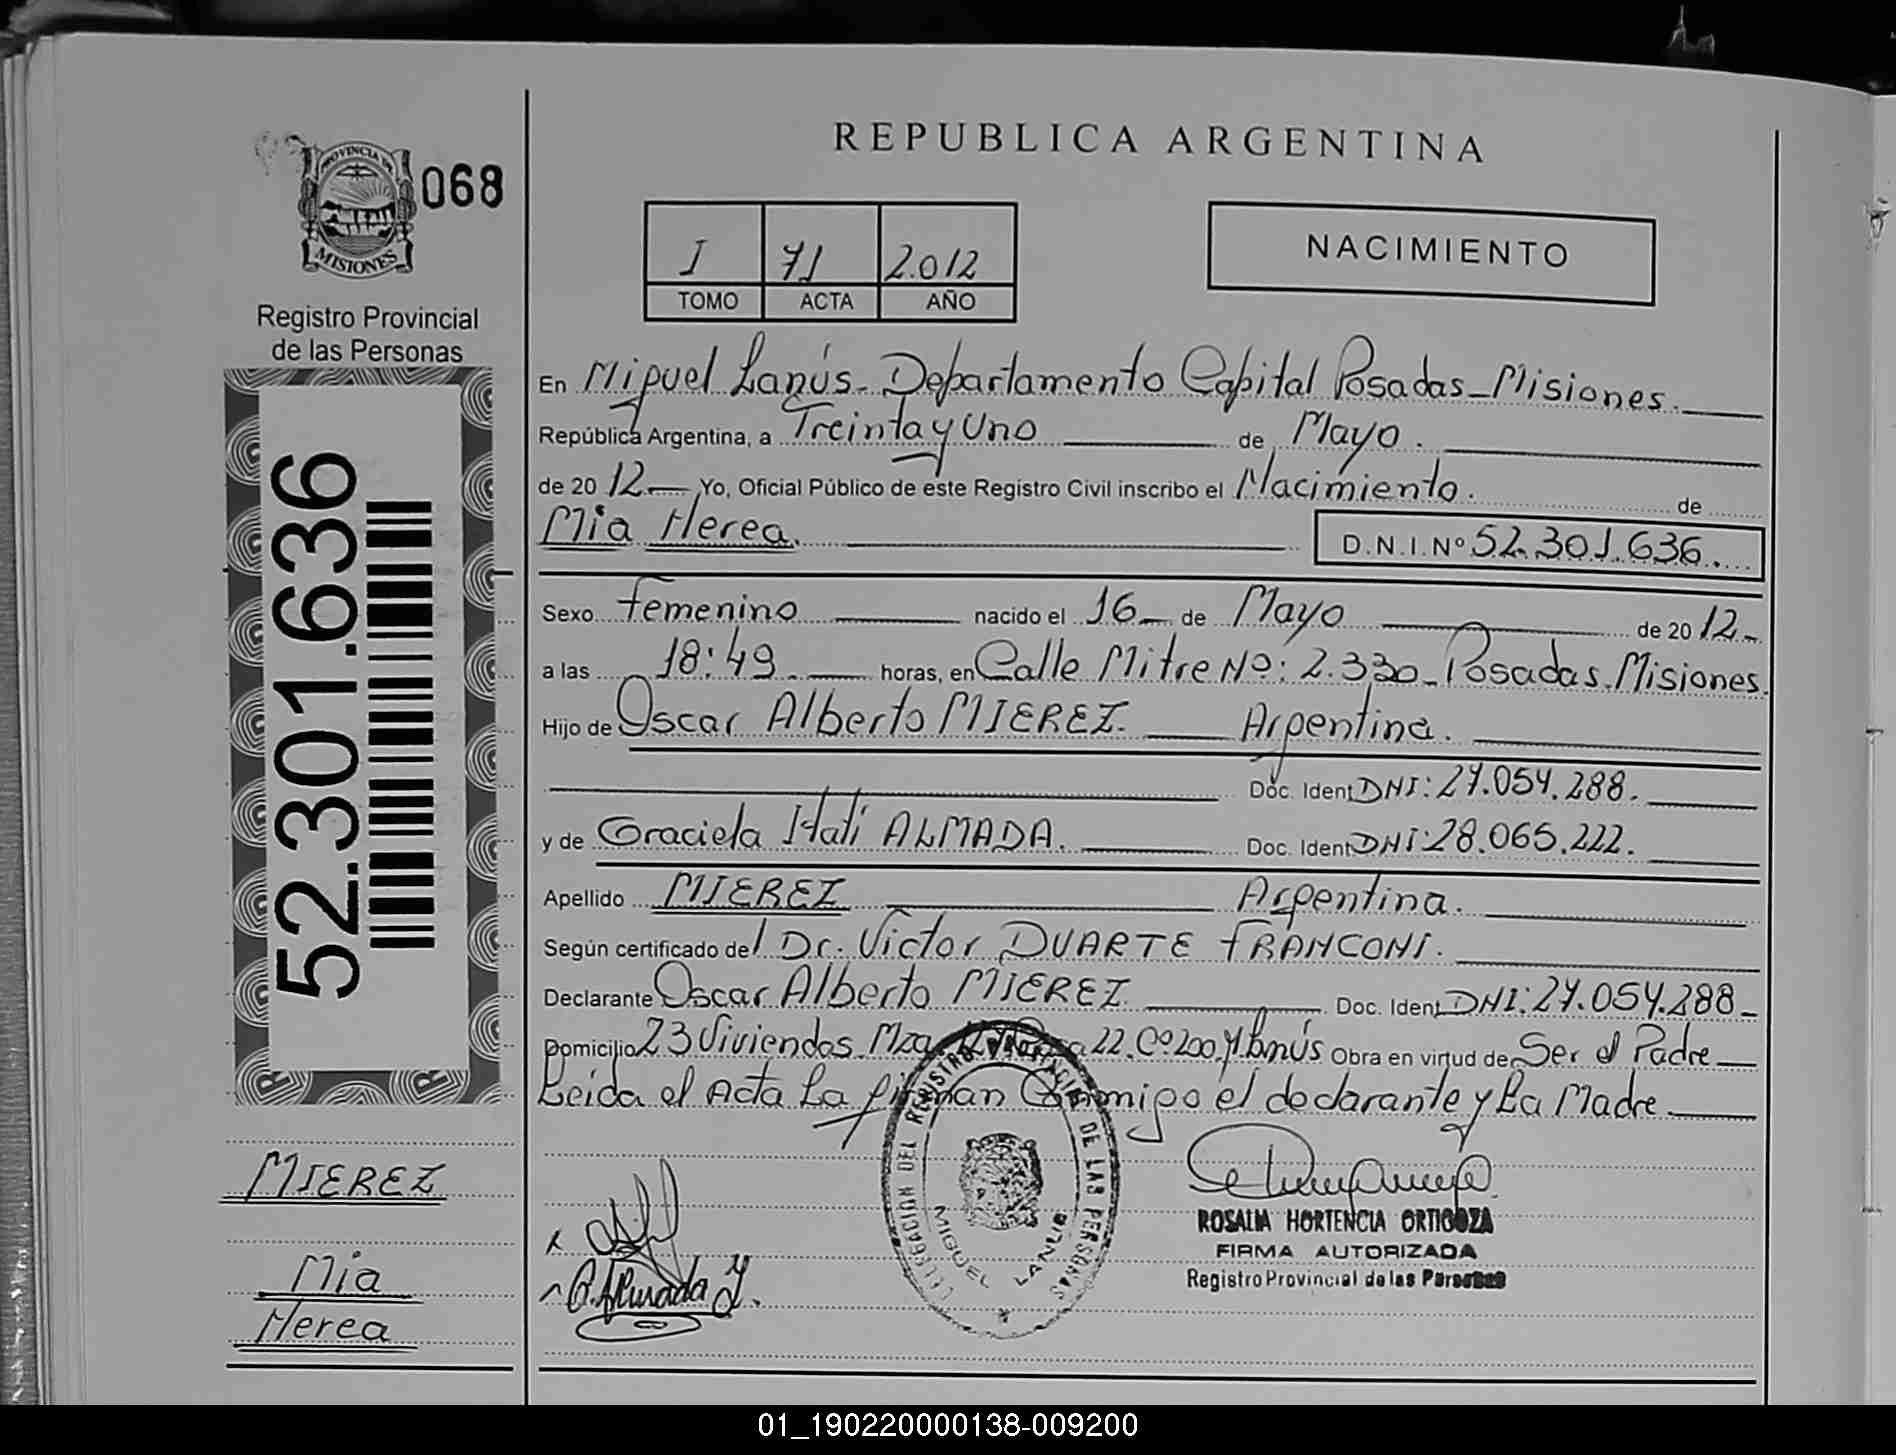 REPUBLICA ARGENTINA
PROVINCIA DE
MISIONES
068
Registro Provincial
de las Personas
52.301.636
I 71 2.012
TOMO ACTA AÑO
NACIMIENTO
En Miguel Lanús - Departamento Capital Posadas - Misiones.
República Argentina, a Treinta y Uno de Mayo.
de 20 12 Yo, Oficial Público de este Registro Civil inscribo el Nacimiento. de
Mia Nerea. D.N.I.Nº 52.301.636.
Sexo Femenino nacido el 16 de Mayo de 20 12
a las 18:49 horas, en Calle Mitre Nº: 2.330 - Posadas. Misiones.
Hijo de Oscar Alberto MIEREZ. Argentina.
Doc. Ident DNI: 27.054.288.
y de Graciela Itatí ALMADA. Doc. Ident DNI: 28.065.222.
Apellido MIEREZ Argentina.
Según certificado del Dr. Victor DUARTE FRANCONI.
Declarante Oscar Alberto MIEREZ Doc. Ident DNI: 27.054.288
Domicilio 23 Viviendas Mza 22. Obra en virtud de Ser el Padre
Leída el Acta La firman Conmigo el declarante y La Madre
DELEGACION DEL REGISTRO PROVINCIAL DE LAS PERSONAS
MIGUEL LANUS
G. Almada I.
ROSALIA HORTENCIA ORTIGOZA
FIRMA AUTORIZADA
Registro Provincial de las Personas
MIEREZ
Mia
Nerea
01_190220000138-009200